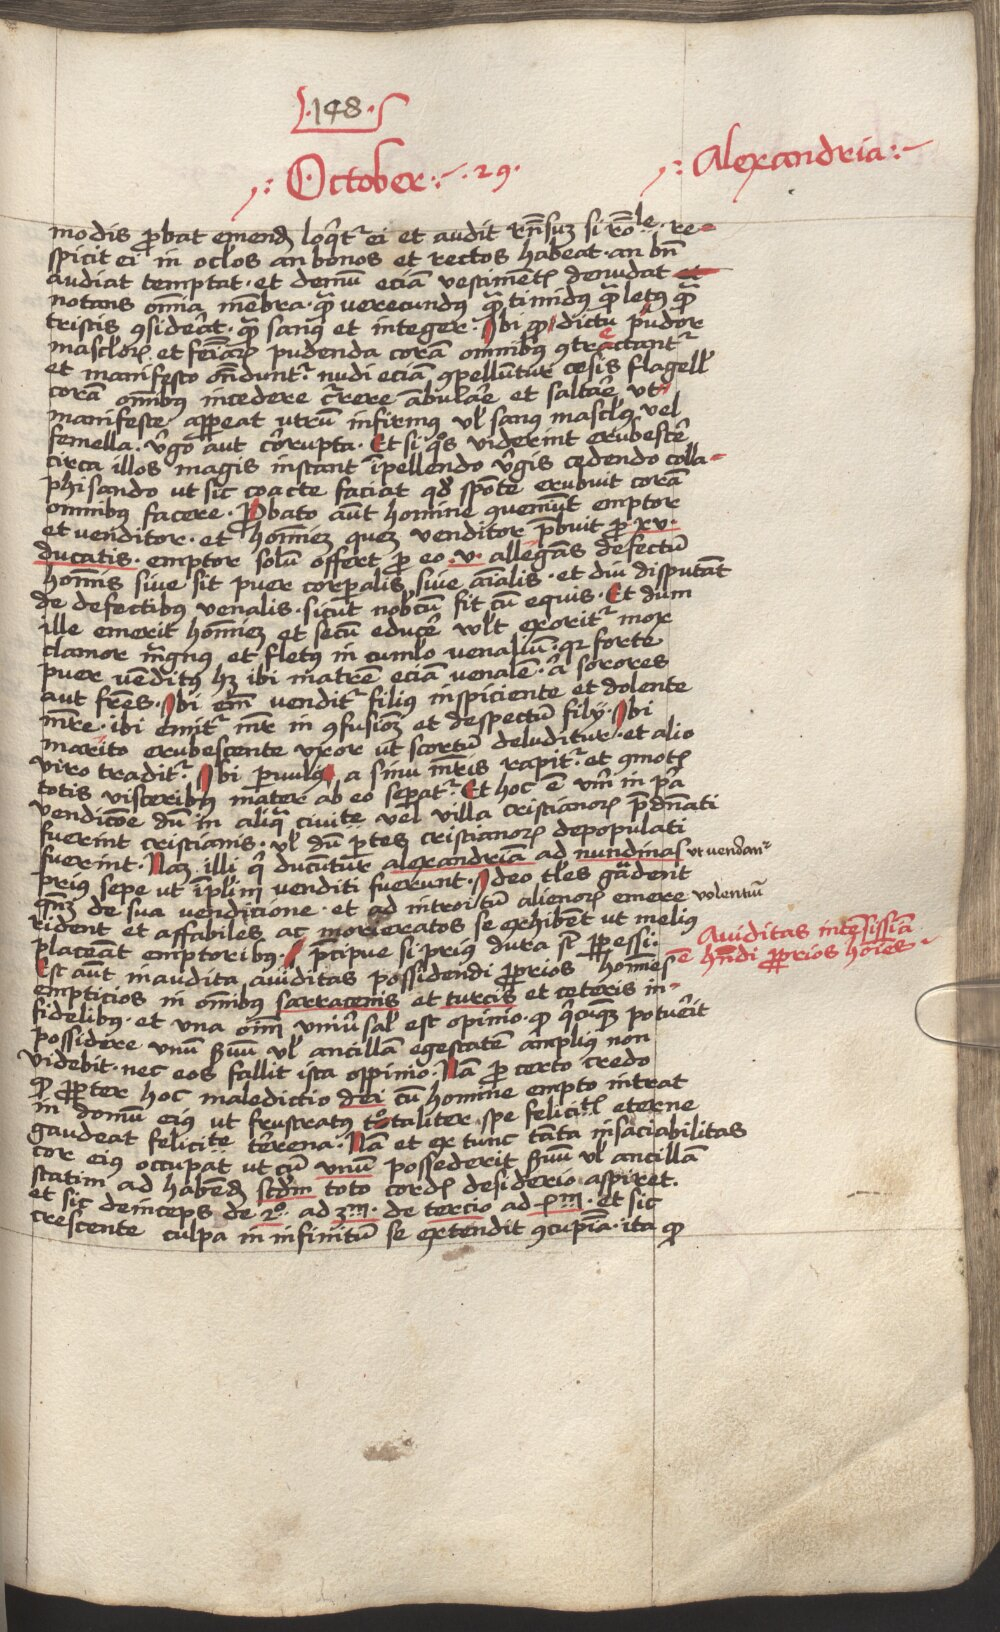 .148.
October .29.
Alexandria
modis p̱bat emend̄ loq̄tr ei et audit rn̄sum si rōle. re-
spicit ei in oclos an bonos et rectos habeat. an bn̄
audiat temptat. et demū eciā vestimentꝭ denudat et
notans om̄ia mēbra. qͣ verecundꝰ qͣ timidꝰ qͣ letꝰ qͣ
tristis ꝯsiderat. qͣ sanꝰ et integer. Ibi ꝓ dictu pudor
mascloꝝ et femīaꝝ pudenda corā omnibꝰ ꝯtractantr
et manifesto on̄duntr. nudi eciā ꝯpelluntur cesis flagellꝭ
corā omnibus incedere currere ābulare et saltare vt
manifeste aꝑeat vtrū infirmus vl̄ sanꝰ masclꝰ. vel
femella. v̄go aut corrupta. Et si qͦs viderint erubescē
circa illos magis instant īpellendo v̄gis cedendo colla-
phisando ut sic coacte faciat qd̄ spōte erubuit coram
omnibꝰ facere. Ꝓbato aūt homine ꝯueniūt emptor
et venditor. et hominem quem venditor p̄buit ꝓ xv.
ducatis. emptor solū offert ꝓ eo .v. allegans defectū
hom̄is sive sit puer corꝑalis, sive aīalis. et diu disputāt
de defectibꝰ venalis. sicut nobcū fit cū equis. Et dum
ille emerit hom̄iem et secū educe vult exoritr mox
clamor mͣgnus et fletꝰ in cumlo venaliū. qr forte
puer venditꝰ hꝫ ibi matrē eciā venalē. aͭ sorores
aut frēs. Ibi em̄ venditr filius inspiciente et dolente
mr̄e. ibi emitr mr̄ in ꝯfusioem et despectū filij. Ibi
marito erubescente vxor ut scortū deluditur. et alio
viro traditr. Ibi ꝑvulꝰ a sinu mr̄is rapitr. et ꝯmotꝭ
totis visceribꝰ mater ab eo seꝑatr. Et hoc ē vm̄ in pͥa
vendicōe dū in aliqͣ ciuitͭe vel villa cristianoꝝ p̄dn̄ati
fuerint cristianis. vl̄ dū ꝑtes cristianoꝝ depopulati
fuerint. Nam illi qͥ ducūtur alexandriā ad nundinas ut vendanr
prius sepe ut īplim venditi fuerunt. Ideo tl̄es gaudent
qn̄ de sua vendicione. et ad introitū alienoꝝ emere volentiū
rident et affabiles ac morieratos se exhibēt ut melius
placeāt emptoribꝰ. p̄cipue si prius dura sт̄ ꝑpessi.
Est aūt inaudita auiditas possidendi ꝓprios hom̄nes
empticios in omnibꝰ sarracenis et turcis et ceteris in-
fidelibꝰ. et vna om̄i vniūsal est opinio. ꝙ qͥcūqꝫ potuerit
possidere vnū sͥuū vl̄ ancillā egestatē ampliꝰ non
videbit. nec eos fallit ista oppinio. Nā ꝓ certo credo
ꝙ ꝓpter hoc maledictio dei cū homine empto intrat
in domū eiꝰ ut frustratꝰ totaliter. spe felicitꝭ eterne
gaudeat felicitͭe terrena. Nā et ex tunc tāta insaciabilitas
cor eiꝰ occupat ut cū vnū possederit sͥuū vl̄ ancillā
statim ad habend̄ scdm̄ toto cordꝭ desiderio aspiret.
et sic deinceps de 2o. ad 3m. de tercio ad 4m. et sic
crescente culpa in infinitū se extendit ꝯcupīa. ita ꝙ
Auiditas intēsissīa
ē hn̄di ꝓprios hoīes